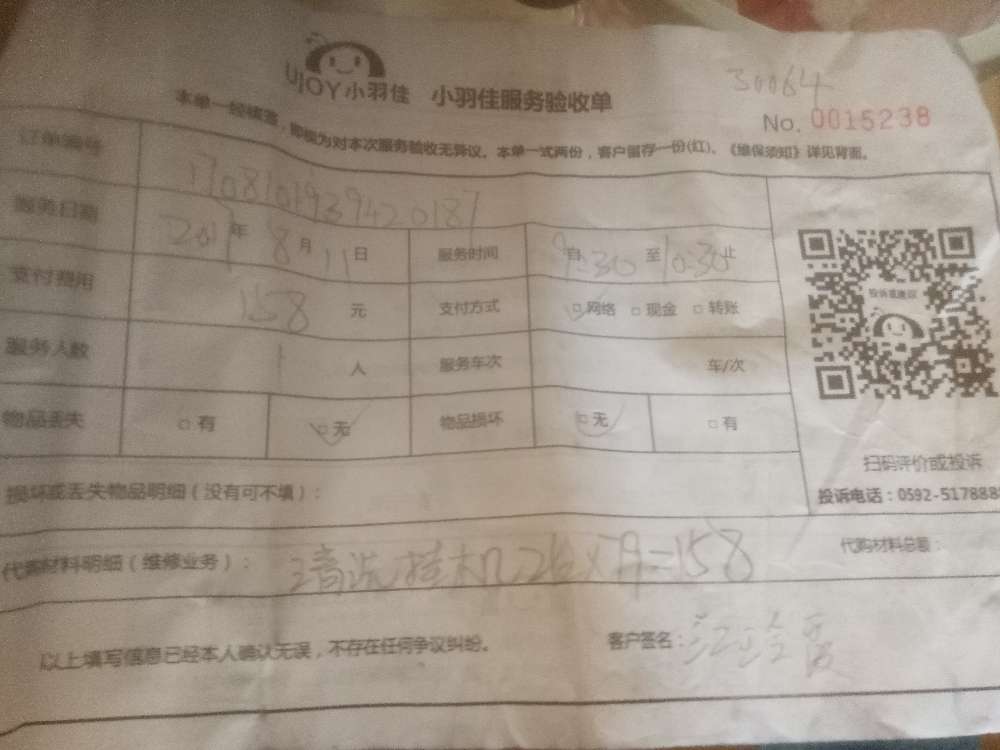 30064
UJOY小羽佳 小羽佳服务验收单
No. 0015238
本单一经核签，即视为对本次服务验收无异议。本单一式两份，客户留存一份(红)、《维保须知》详见背面。
订单编号 1708101939420187
服务日期 2017年 8月 11日 服务时间 自 9:30 至 10:30 止
支付费用 158 元 支付方式 □网络 □现金 □转账
服务人数 1 人 服务车次 车/次
物品丢失 □有 □无 物品损坏 □无 □有
投诉或建议
扫码评价或投诉
投诉电话：0592-517888
损坏或丢失物品明细（没有可不填）：
代购材料明细（维修业务）： 清洗挂机2台×79=158 代购材料总额：
以上填写信息已经本人确认无误，不存在任何争议纠纷。 客户签名：